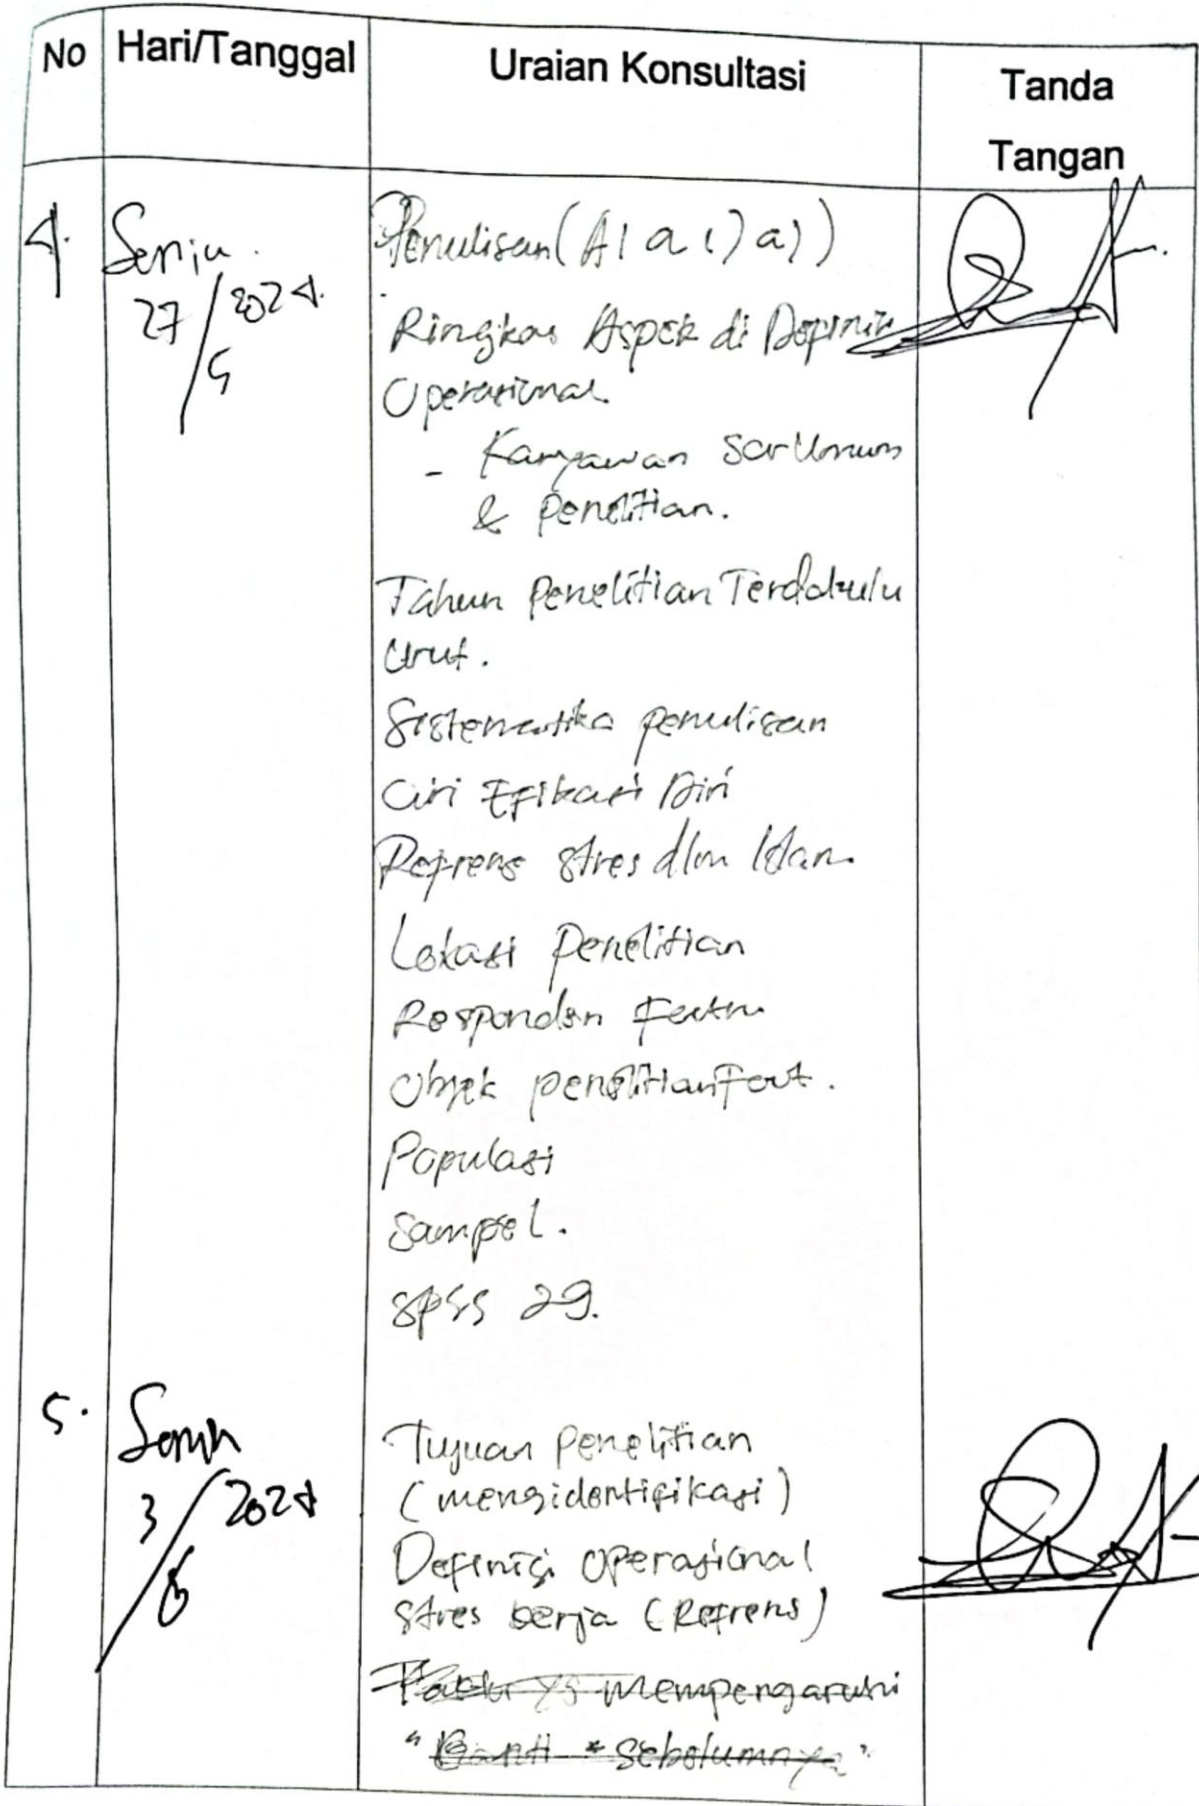 No Hari/Tanggal Uraian Konsultasi Tanda
Tangan
4. Senin Penulisan (A 1 a 1) a))
27/5 2024 Ringkas Aspek di
Operasional
- Karyawan Umum
& penelitian.
Tahun Penelitian Terdahulu
Urut.
Sistematika penulisan
Ciri Efikasi Diri
Refrens stres dlm Islam
Lokasi Penelitian
Responden
Objek penelitian
Populasi
Sampel.
SPSS 29.
5. Senin Tujuan Penelitian
3/6 2024 (mengidentifikasi)
Definisi Operasional
Stres kerja (Refrens)
Faktor yg mempengaruhi
" * sebelumnya "